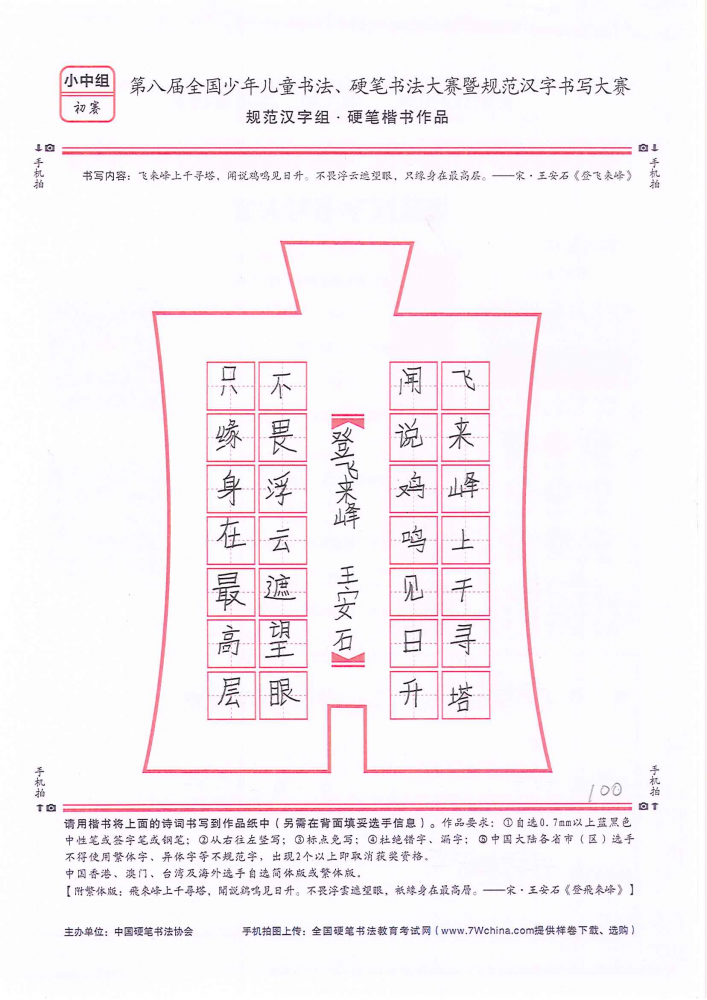 小中组
初赛
第八届全国少年儿童书法、硬笔书法大赛暨规范汉字书写大赛
规范汉字组·硬笔楷书作品
手机拍
手机拍
书写内容：飞来峰上千寻塔，闻说鸡鸣见日升。不畏浮云遮望眼，只缘身在最高层。——宋·王安石《登飞来峰》
飞来峰上千寻塔
闻说鸡鸣见日升
登飞来峰 王安石
不畏浮云遮望眼
只缘身在最高层
100
手机拍
手机拍
请用楷书将上面的诗词书写到作品纸中（另需在背面填妥选手信息）。作品要求：①自选0.7mm以上蓝黑色
中性笔或签字笔或钢笔；②从右往左竖写；③标点免写；④杜绝错字、漏字；⑤中国大陆各省市（区）选手
不得使用繁体字、异体字等不规范字，出现2个以上即取消获奖资格。
中国香港、澳门、台湾及海外选手自选简体版或繁体版。
【附繁体版：飛來峰上千尋塔，聞說鷄鳴見日升。不畏浮雲遮望眼，衹緣身在最高層。——宋·王安石《登飛來峰》】
主办单位：中国硬笔书法协会
手机拍图上传：全国硬笔书法教育考试网（www.7Wchina.com提供样卷下载、选购）